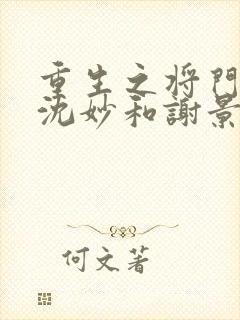 重生之将門
沈妙和謝景
何文著